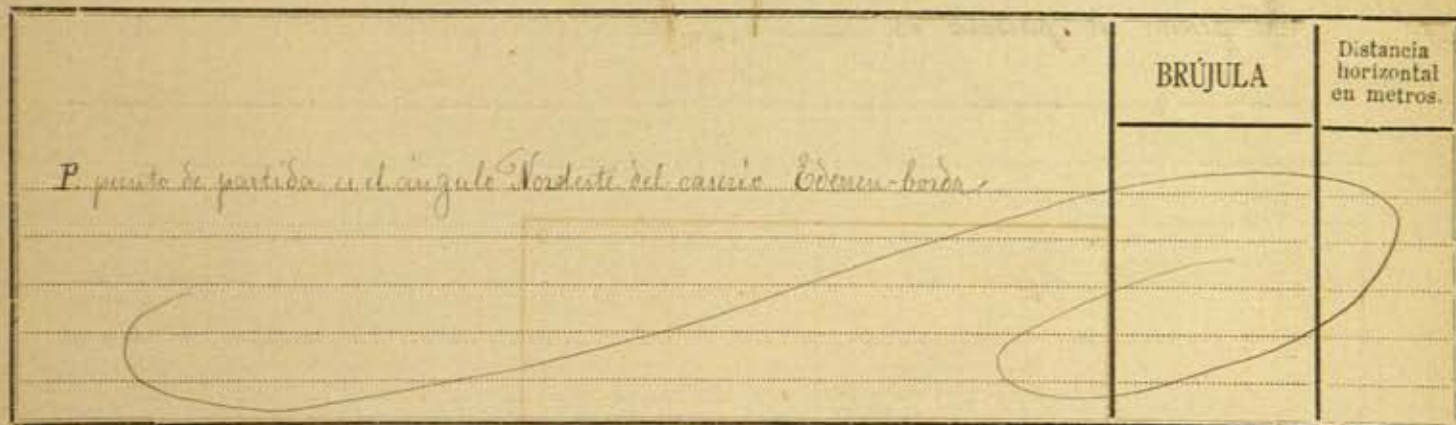 BRÚJULA
Distancia
horizontal
en metros.
P. punto de partida es el ángulo Nordeste del caserío Ederren-borda